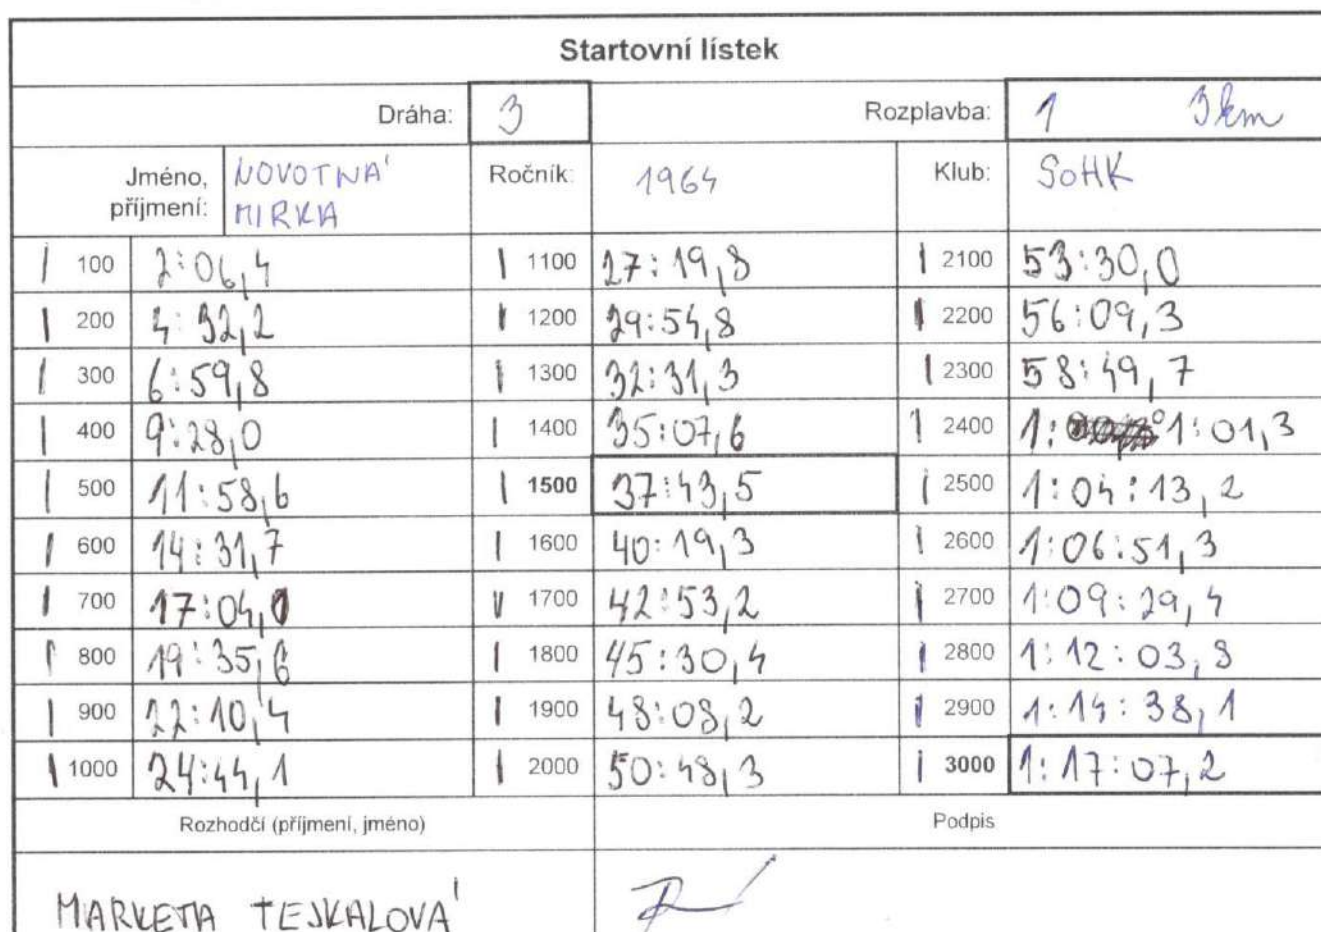 Startovní lístek
Dráha: 3 Rozplavba: 1 3km
Jméno, příjmení: NOVOTNÁ MIRKA Ročník: 1964 Klub: SoHK
100 2:06,4 1100 27:19,8 2100 53:30,0
200 4:32,2 1200 29:54,8 2200 56:09,3
300 6:59,8 1300 32:31,3 2300 58:49,7
400 9:28,0 1400 35:07,6 2400 1:01:01,3
500 11:58,6 1500 37:43,5 2500 1:04:13,2
600 14:31,7 1600 40:19,3 2600 1:06:51,3
700 17:04,0 1700 42:53,2 2700 1:09:29,4
800 19:35,6 1800 45:30,4 2800 1:12:03,8
900 22:10,4 1900 48:08,2 2900 1:14:38,1
1000 24:44,1 2000 50:48,3 3000 1:17:07,2
Rozhodčí (příjmení, jméno) Podpis
MARKETA TEJKALOVÁ